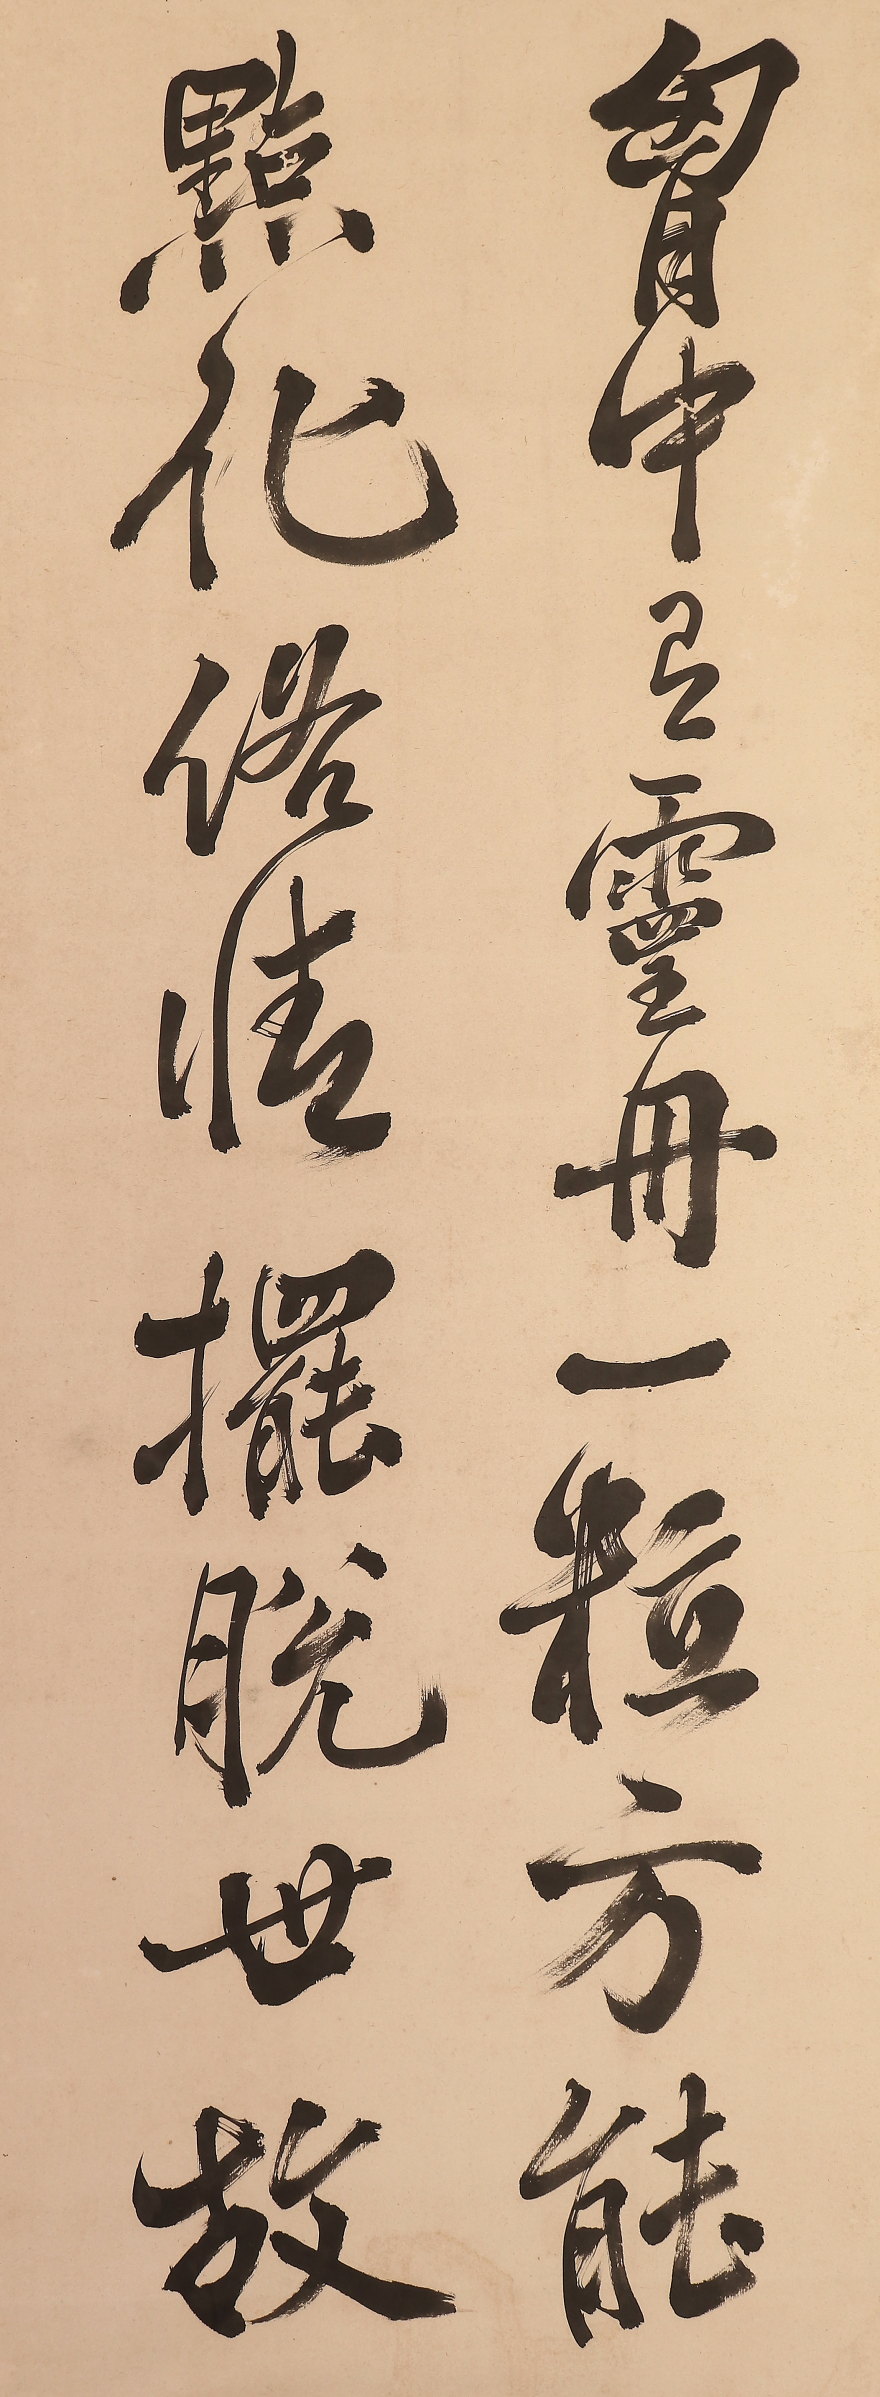 胷中有靈丹一粒方能
點化俗情擺脫世故